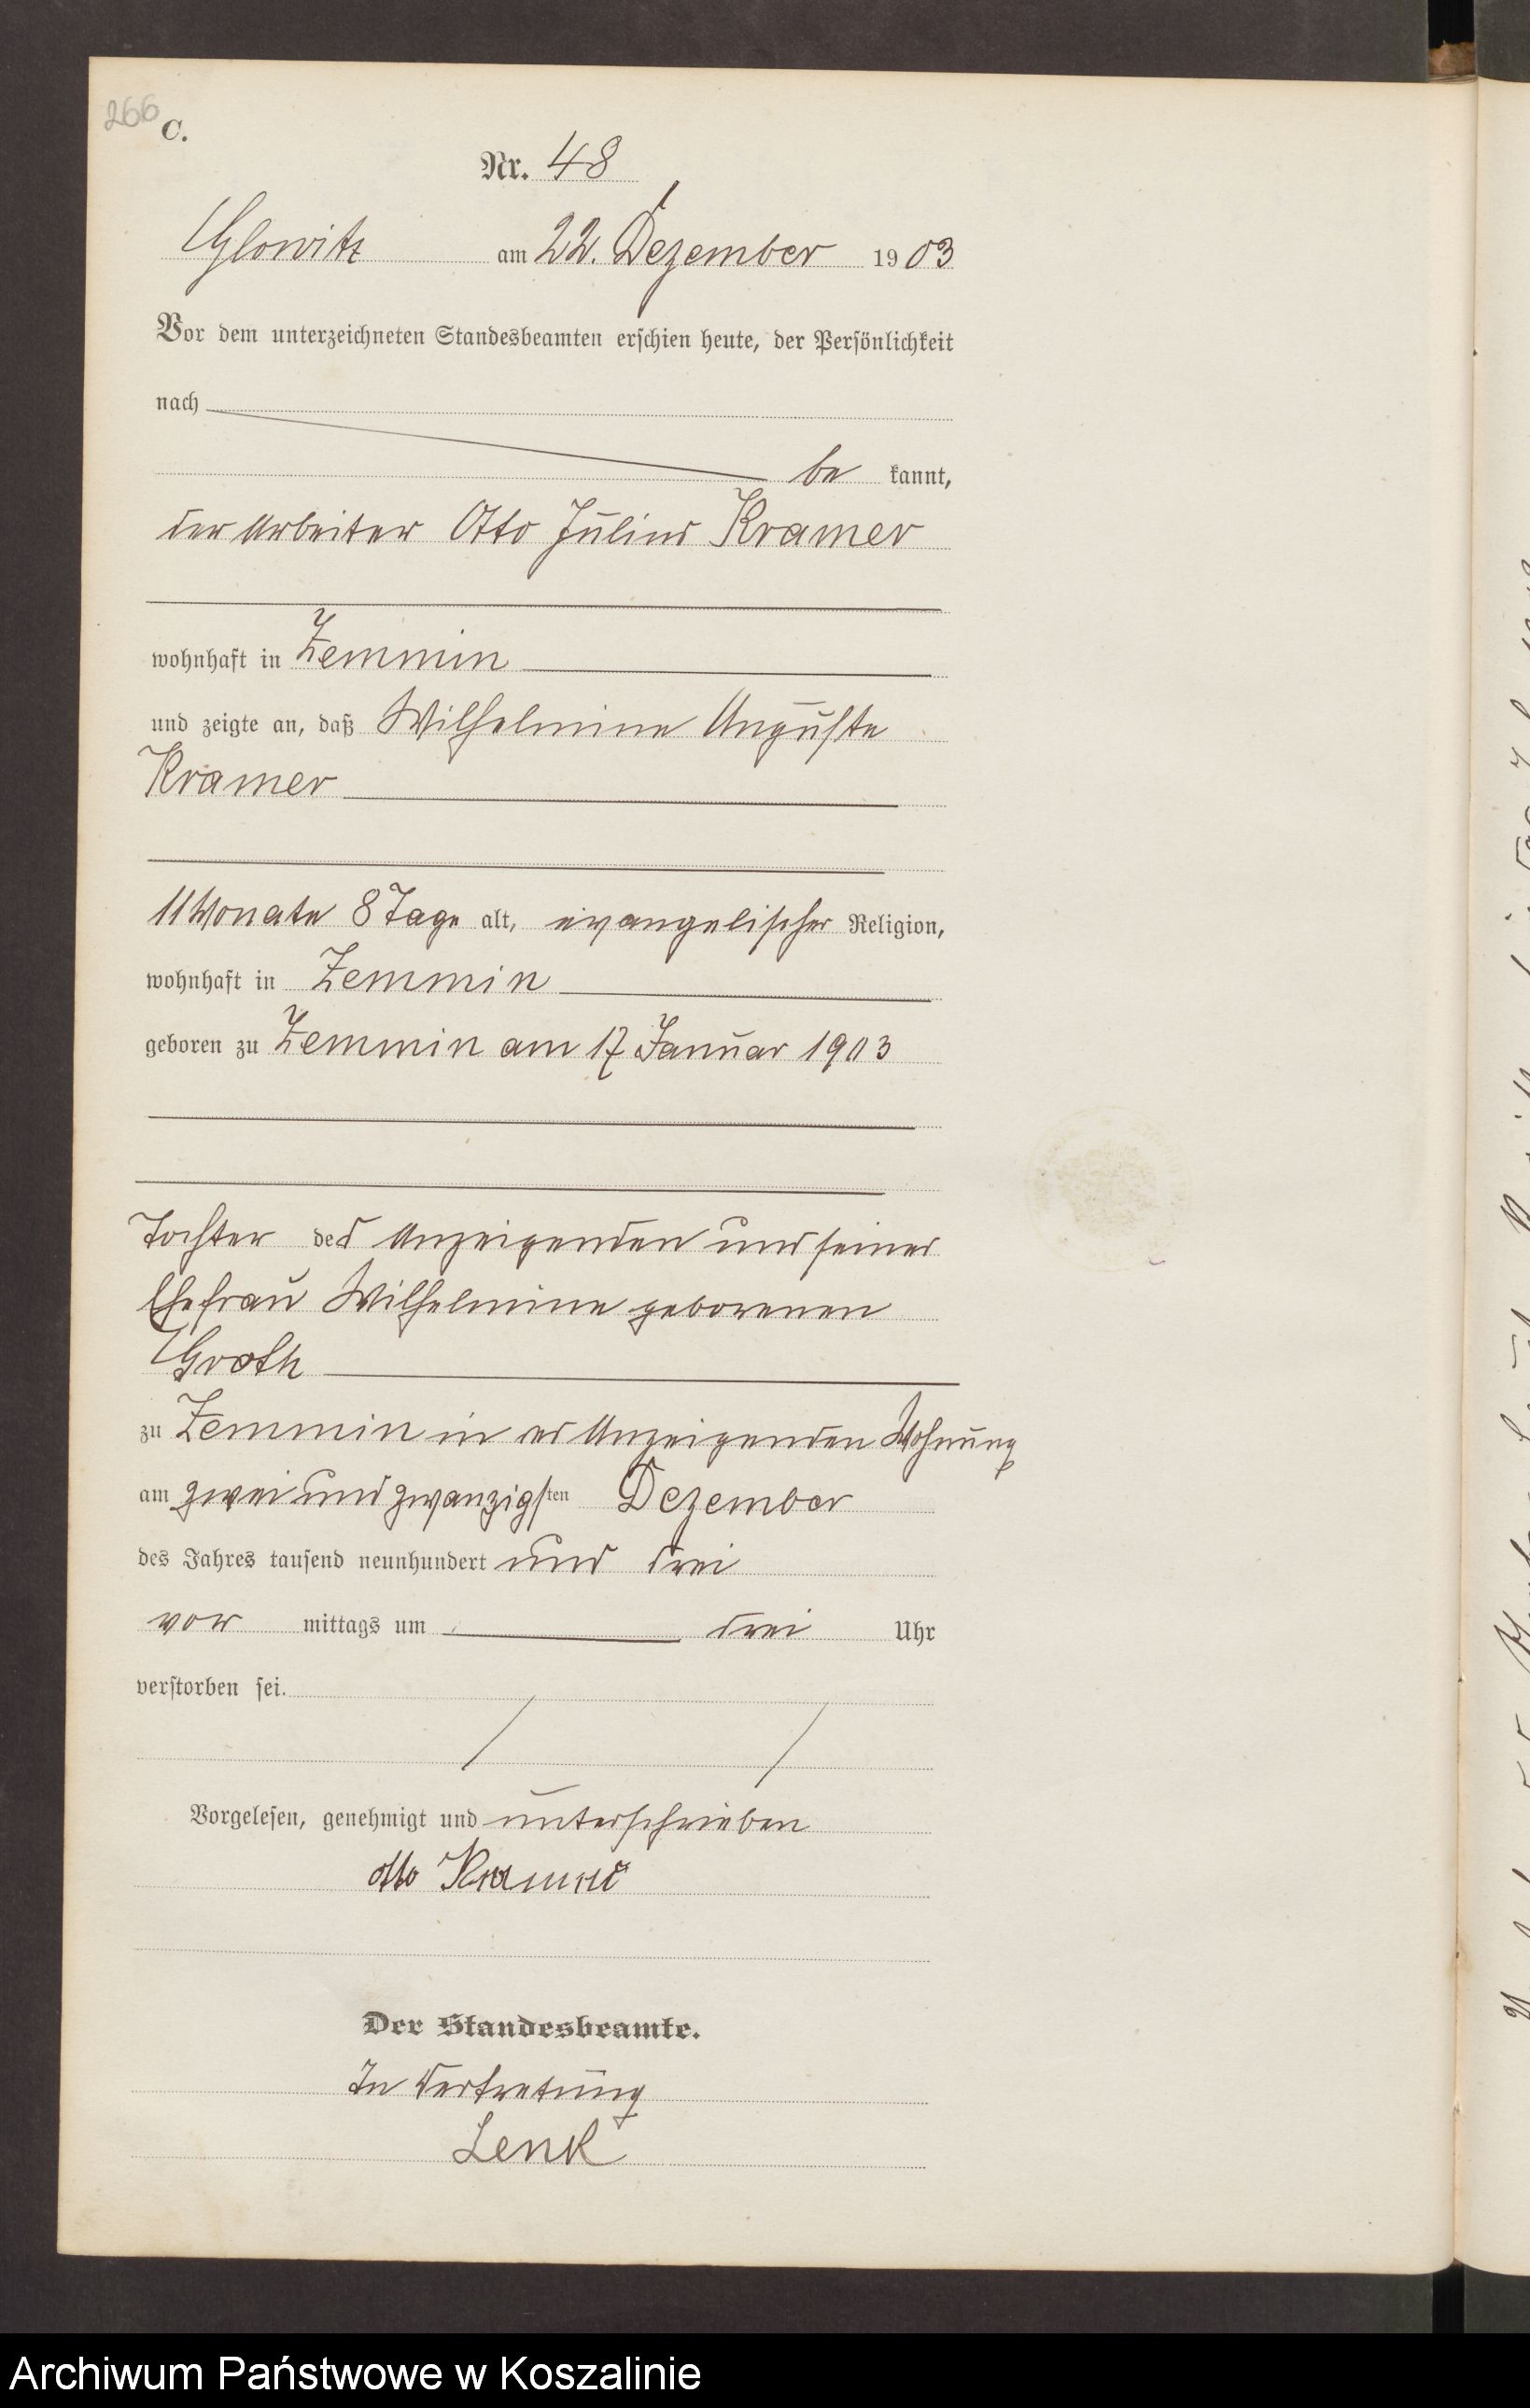 266
C.
Nr. 48
Glowitz am 22. Dezember 1903
Vor dem unterzeichneten Standesbeamten erschien heute, der Persönlichkeit
nach
be kannt,
der Arbeiter Otto Julius Kramer
wohnhaft in Zemmin
und zeigte an, daß Wilhelmine Auguste
Kramer
11 Monate 8 Tage alt, evangelischer Religion,
wohnhaft in Zemmin
geboren zu Zemmin am 17 Januar 1903
Tochter des Anzeigenden und seiner
Ehefrau Wilhelmine geborenen
Groth
zu Zemmin in es Anzeigenden Wohnung
am zwei und zwanzigsten Dezember
des Jahres tausend neunhundert und drei
vor mittags um drei Uhr
verstorben sei.
Vorgelesen, genehmigt und unterschrieben
Otto Kramer
Der Standesbeamte.
In Vertretung
Lenk
Archiwum Państwowe w Koszalinie